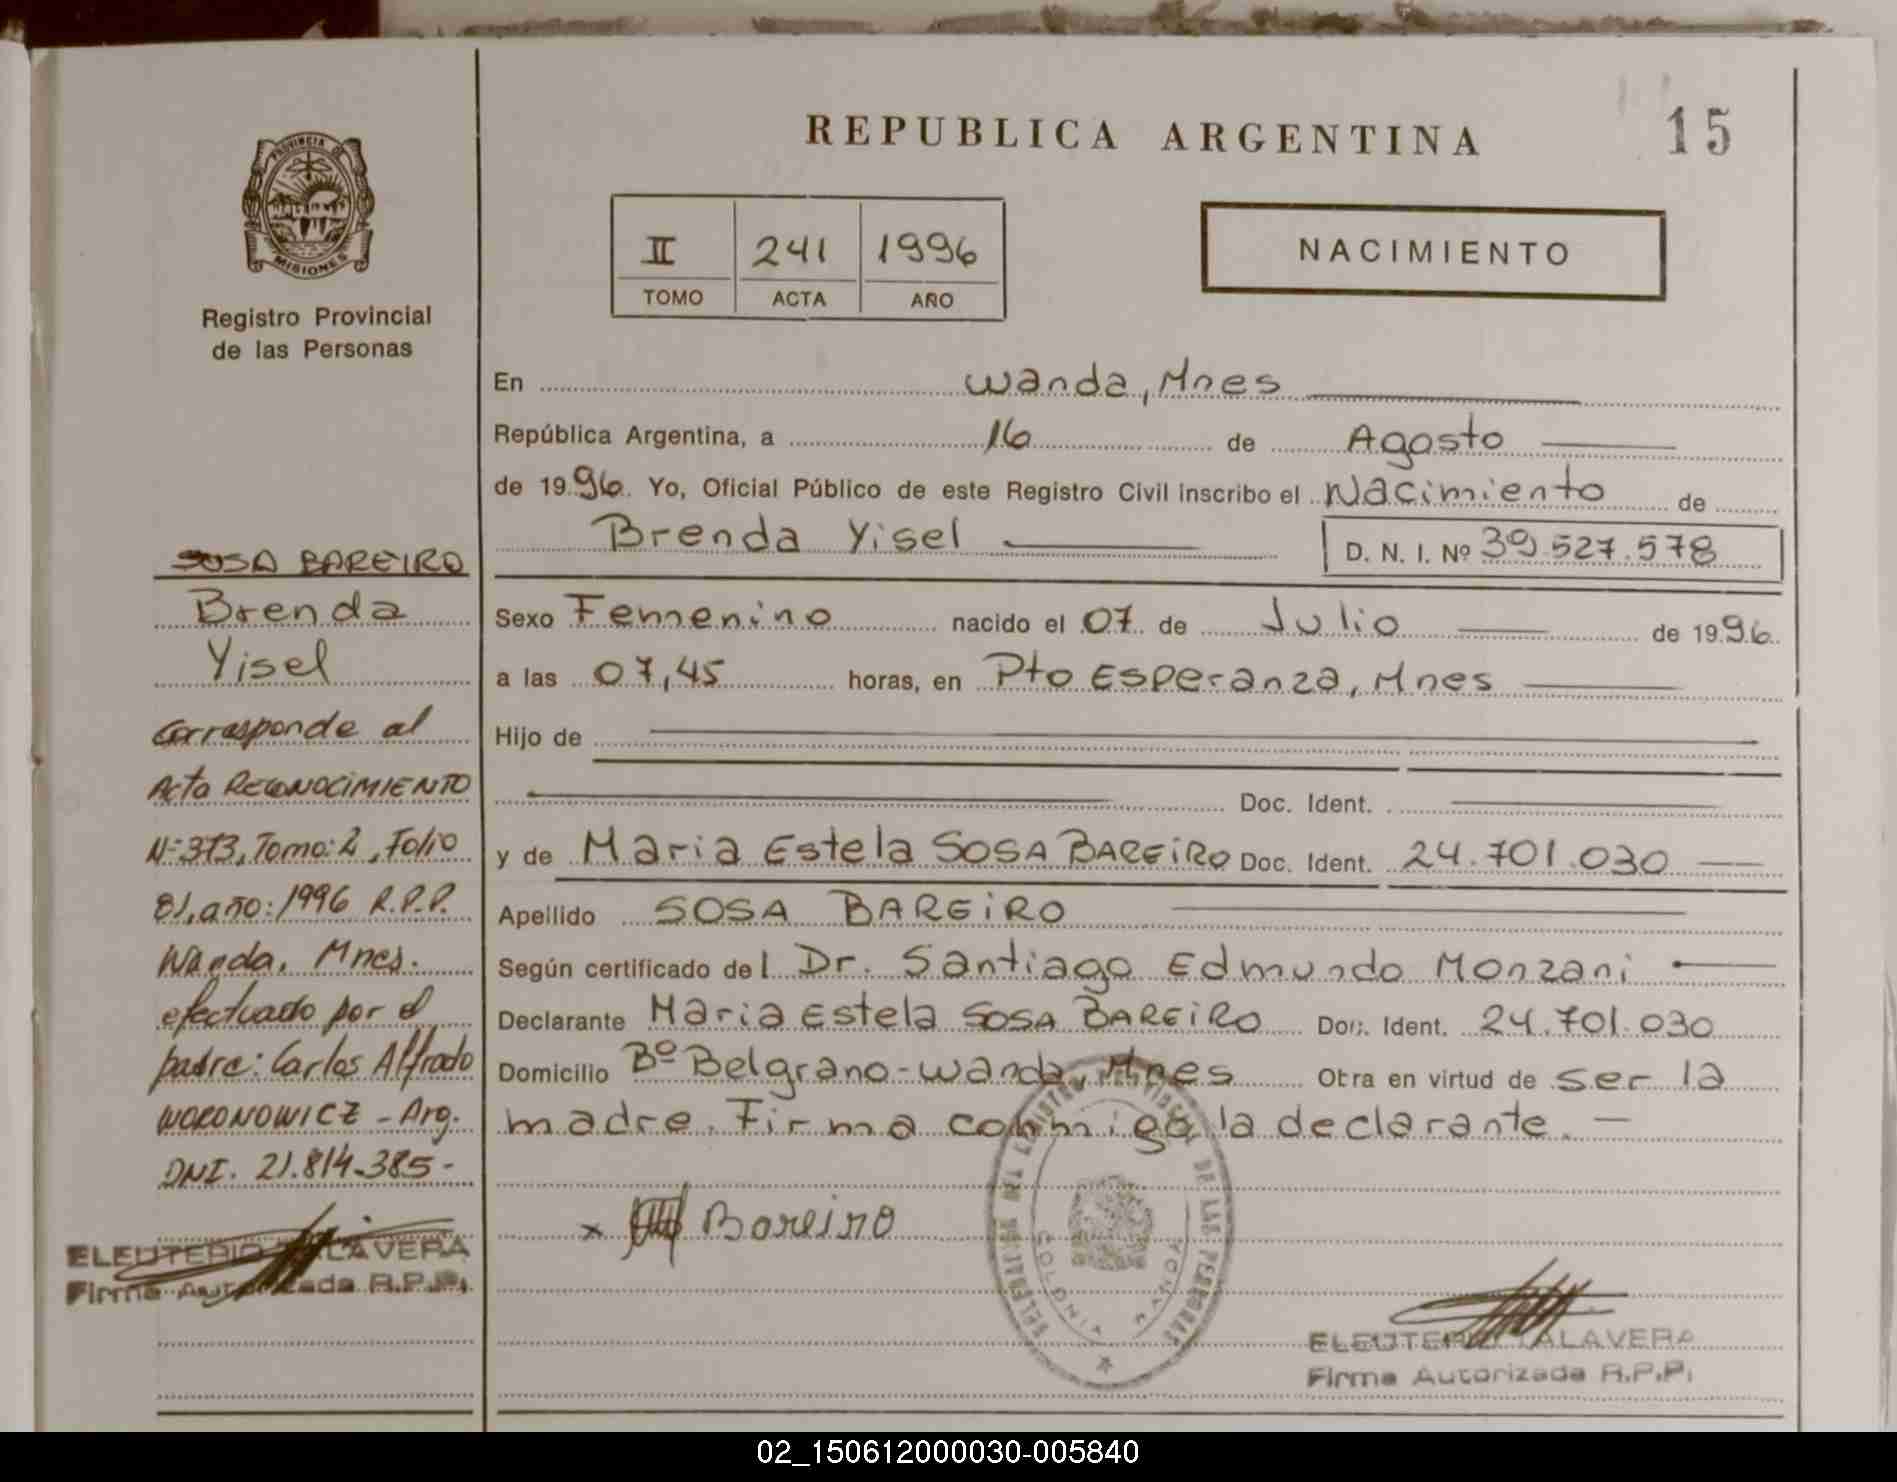 REPUBLICA ARGENTINA
15
PROVINCIA DE
MISIONES
Registro Provincial
de las Personas
II 241 1996
TOMO ACTA AÑO
NACIMIENTO
En Wanda, Mnes
República Argentina, a 16 de Agosto
de 1996. Yo, Oficial Público de este Registro Civil inscribo el Nacimiento de
Brenda Yisel D. N. I. Nº 39.527.578
Sexo Femenino nacido el 07 de Julio de 1996.
a las 07,45 horas, en Pto Esperanza, Mnes
Hijo de
Doc. Ident.
y de Maria Estela SOSA BAREIRO Doc. Ident. 24.701.030
Apellido SOSA BAREIRO
Según certificado del Dr. Santiago Edmundo Monzani
Declarante Maria Estela SOSA BAREIRO Doc. Ident. 24.701.030
Domicilio Bº Belgrano-Wanda, Mnes Otra en virtud de ser la
madre. Firma conmigo la declarante.
x Bareiro
DE LAS PERSONAS
COLONIA WANDA
ELEUTERIO TALAVERA
Firma Autorizada R.P.P.
SOSA BAREIRO
Brenda
Yisel
Corresponde al
Acta RECONOCIMIENTO
Nº 373, Tomo: 2, Folio
81, año: 1996 R.P.P.
Wanda, Mnes.
efectuado por el
padre: Carlos Alfredo
WORONOWICZ - Arg.
DNI. 21.814.385-
ELEUTERIO TALAVERA
Firma Autorizada R.P.P.
02_150612000030-005840